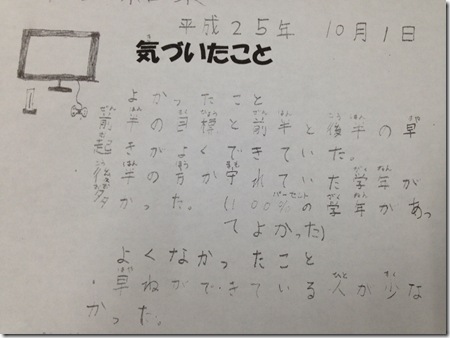 平成25年 10月1日
気づいたこと
よかったこと
前半の目標と前半と後半の早
起きがよくできていた。
後半の方が守れていた学年が
多かった。(100%の学年があっ
てよかった)
よくなかったこと
・早ねができている人が少な
かった。